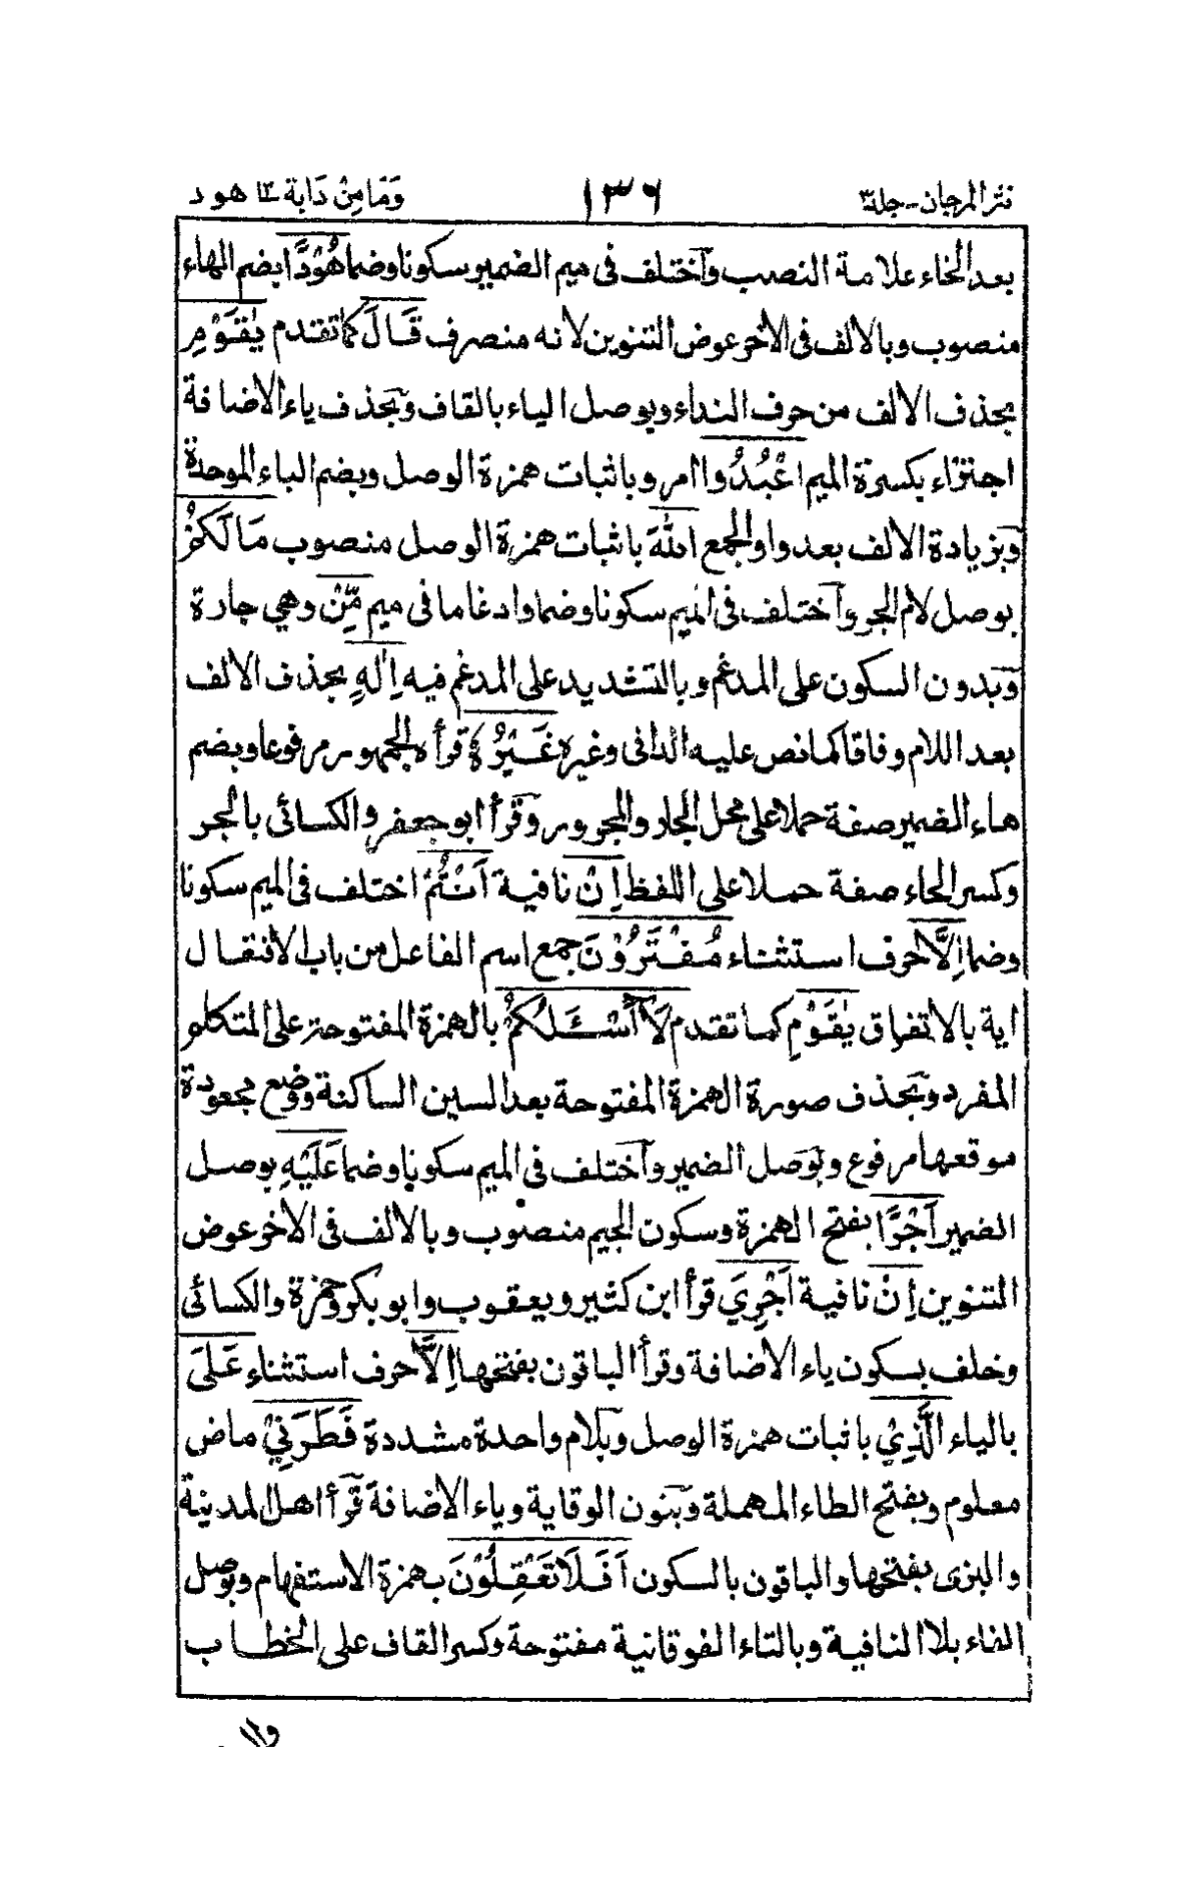 نثر المرجان - جلد٣ ١٣٦ وَمَا مِنْ دَابة ١٢ هود
بعد الخاء علامة النصب وآختلف فى ميم الضمير سكونا وضما هُوْدًا بضم الهاء
منصوب وبالالف فى الأخر عوض التنوين لانه منصرف قَالَ كما تقدم يٰقَوْمِ
بحذف الالف من حرف النداء وبوصل الياء بالقاف وبحذف ياء الاضافة
اجتزاء بكسرة الميم اعْبُدُوا امر وباثبات همزة الوصل وبضم الباء الموحدة
وبزيادة الالف بعد واو الجمع اللّٰهَ باثبات همزة الوصل منصوب مَا لَكُمْ
بوصل لام الجر وآختلف فى الميم سكونا وضما وادغاما فى ميم مِّنْ وهي جارة
وبدون السكون على المدغم وبالتشديد على المدغم فيه اِلٰهٍ بحذف الالف
بعد اللام وفاقا كما نص عليه الدانى وغيره غَيْرُهٗ قرأه الجمهور مرفوعا وبضم
هاء الضمير صفة حملا على محل الجار والمجرور وقرأ ابو جعفر والكسائى بالجر
وكسر الهاء صفة حملا على اللفظ اِنْ نافية اَنْتُمْ اختلف فى الميم سكونا
وضما اِلَّا حرف استثناء مُفْتَرُوْنَ جمع اسم الفاعل من باب الافتعال
اية بالاتفاق يٰقَوْمِ كما تقدم لَآ اَسْـَٔلُكُمْ بالهمزة المفتوحة على المتكلم
المفرد وبحذف صورة الهمزة المفتوحة بعد السين الساكنة ووضع مجعودة
موقعها مرفوع وبوصل الضمير وآختلف فى الميم سكونا وضما عَلَيْهِ بوصل
الضمير اَجْرًا بفتح الهمزة وسكون الجيم منصوب وبالالف فى الأخر عوض
التنوين اِنْ نافية اَجْرِيَ قرأ ابن كثير ويعقوب وابو بكر وحمزة والكسائى
وخلف بسكون ياء الاضافة وقرأ الباقون بفتحها اِلَّا حرف استثناء عَلَى
بالياء الَّذِيْ باثبات همزة الوصل وبلام واحدة مشددة فَطَرَنِيْ ماض
معلوم وبفتح الطاء المهملة وبنون الوقاية وياء الاضافة قرأ اهل المدينة
والبزى بفتحها والباقون بالسكون اَفَلَا تَعْقِلُوْنَ بهمزة الاستفهام وبوصل
الفاء بلا النافية وبالتاء الفوقانية مفتوحة وكسر القاف على الخطاب